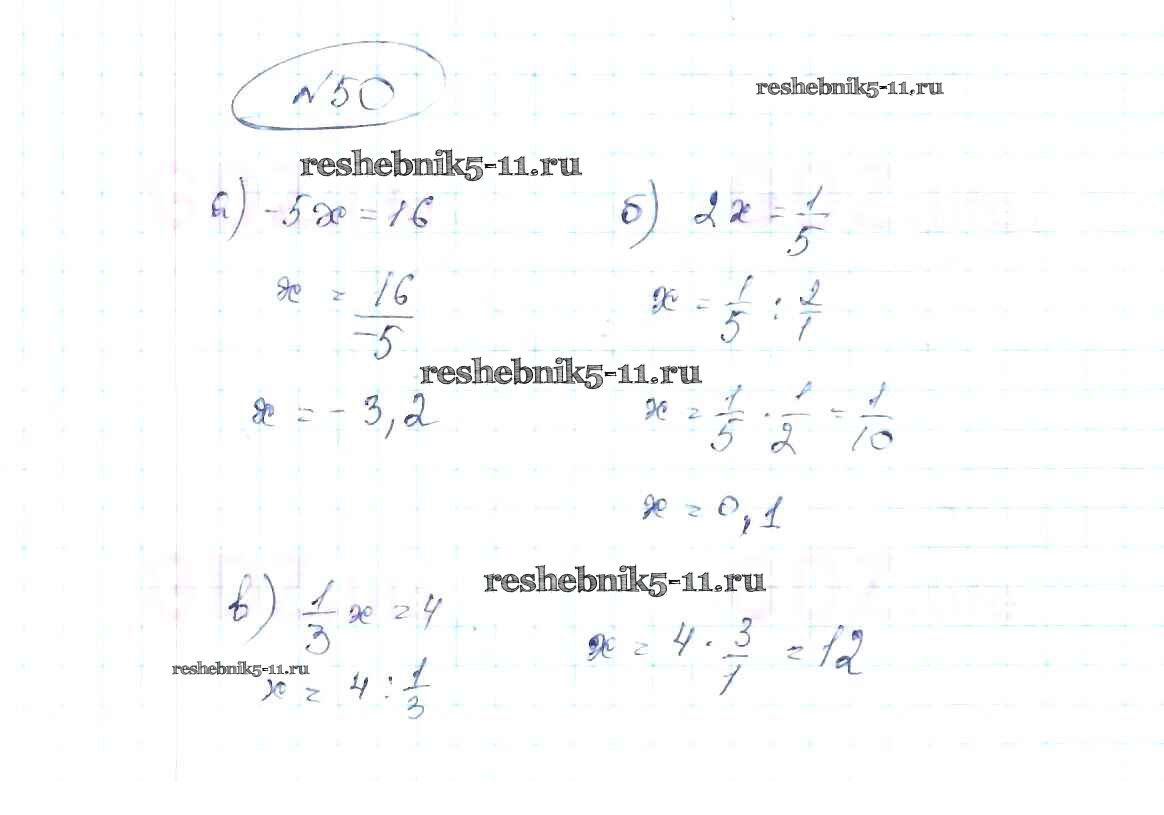 №50
reshebnik5-11.ru
reshebnik5-11.ru
а) -5x = 16
x = 16/-5
x = -3,2
б) 2x = 1/5
x = 1/5 : 2/1
reshebnik5-11.ru
x = 1/5 · 1/2 = 1/10
x = 0,1
reshebnik5-11.ru
в) 1/3 x = 4
reshebnik5-11.ru
x = 4 : 1/3
x = 4 · 3/1 = 12